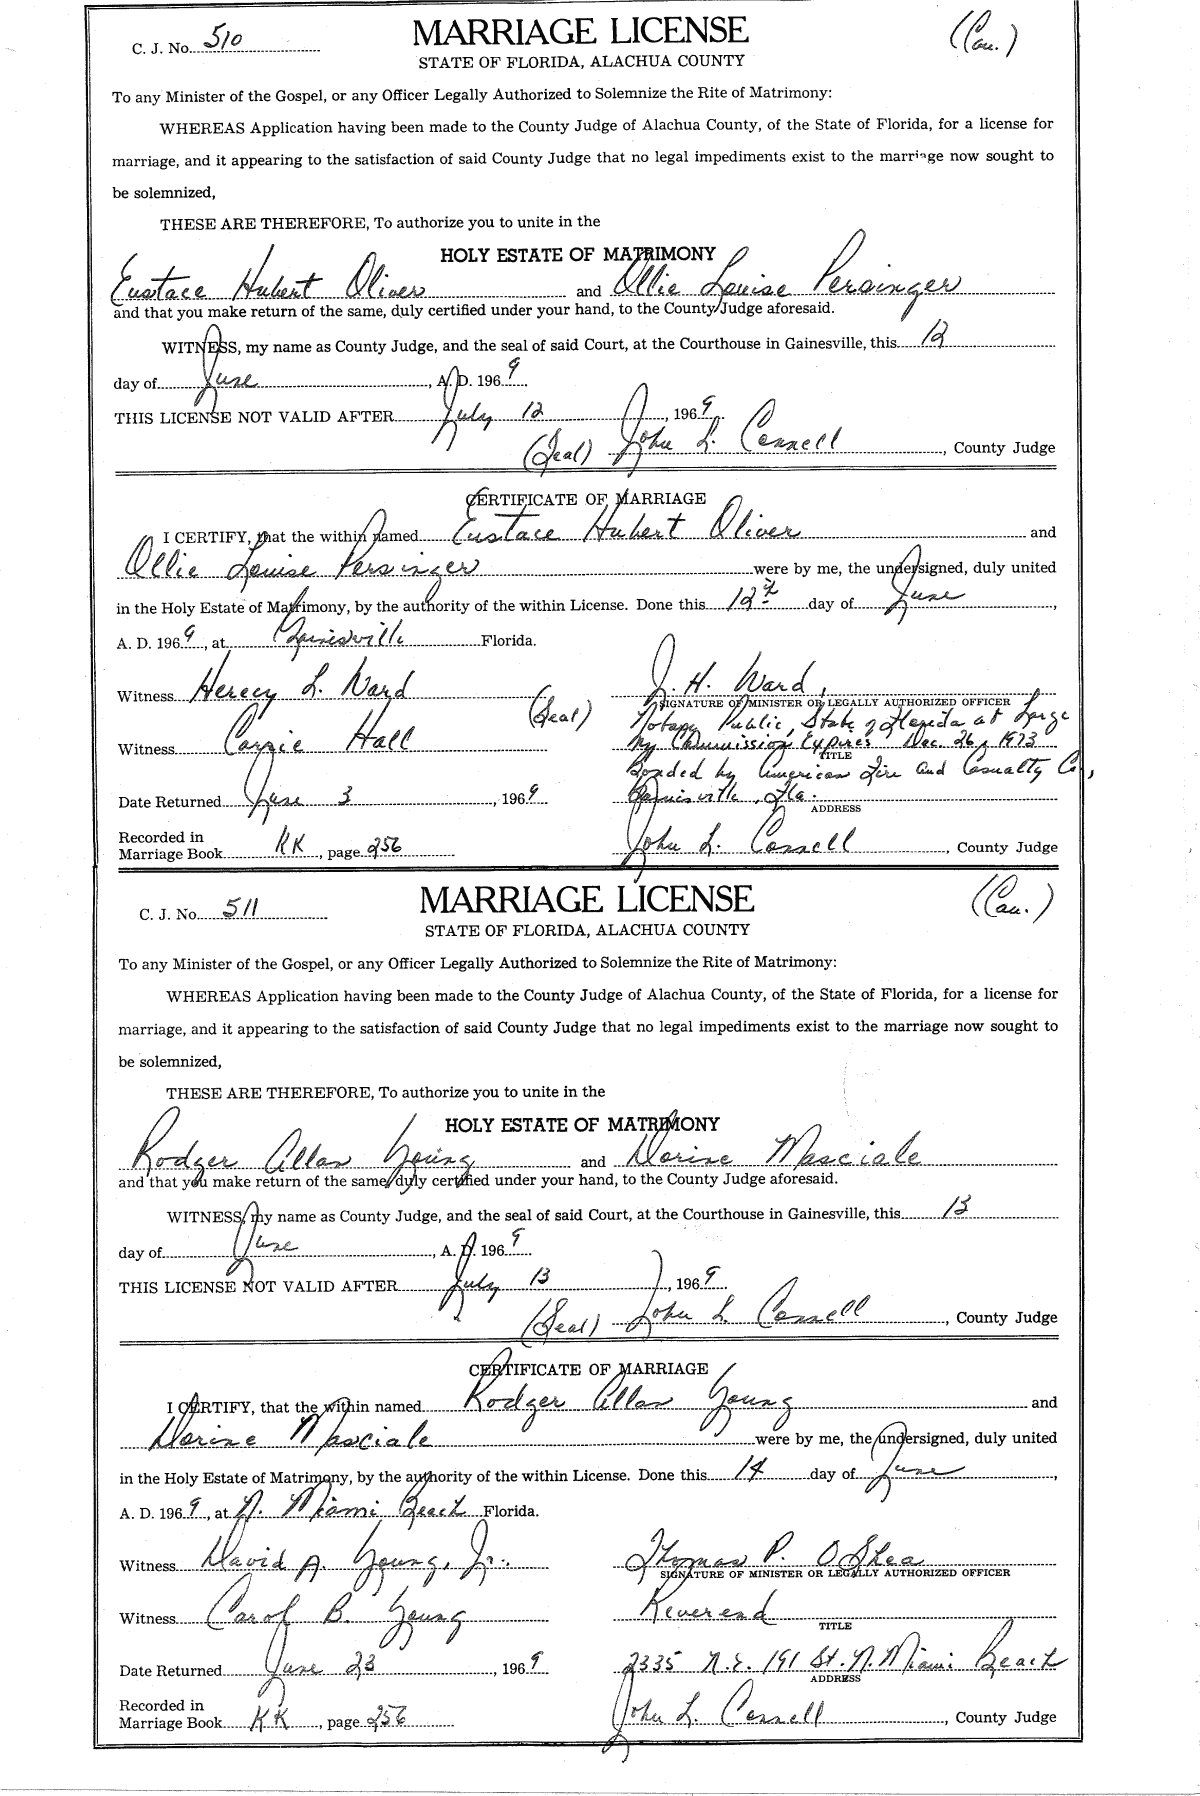 C. J. No. 510 MARRIAGE LICENSE (Cau.)
STATE OF FLORIDA, ALACHUA COUNTY
To any Minister of the Gospel, or any Officer Legally Authorized to Solemnize the Rite of Matrimony:
WHEREAS Application having been made to the County Judge of Alachua County, of the State of Florida, for a license for
marriage, and it appearing to the satisfaction of said County Judge that no legal impediments exist to the marriage now sought to
be solemnized,
THESE ARE THEREFORE, To authorize you to unite in the
HOLY ESTATE OF MATRIMONY
Eustace Hubert Oliver and Ollie Louise Persinger
and that you make return of the same, duly certified under your hand, to the County Judge aforesaid.
WITNESS, my name as County Judge, and the seal of said Court, at the Courthouse in Gainesville, this 12
day of June, A. D. 1969
THIS LICENSE NOT VALID AFTER July 12, 1969
(Seal) John L. Connell, County Judge
CERTIFICATE OF MARRIAGE
I CERTIFY, that the within named Eustace Hubert Oliver and
Ollie Louise Persinger were by me, the undersigned, duly united
in the Holy Estate of Matrimony, by the authority of the within License. Done this 12th day of June,
A. D. 1969, at Gainesville Florida.
Witness Herecy L. Ward J. H. Ward,
(Seal) SIGNATURE OF MINISTER OR LEGALLY AUTHORIZED OFFICER
Notary Public, State of Florida at Large
Witness Carrie Hall My Commission Expires Dec. 26, 1973
TITLE
Bonded by American Fire and Casualty Co,
Date Returned June 3, 1969 Gainesville, Fla.
ADDRESS
Recorded in
Marriage Book KK, page 256 John L. Connell, County Judge
C. J. No. 511 MARRIAGE LICENSE (Cau.)
STATE OF FLORIDA, ALACHUA COUNTY
To any Minister of the Gospel, or any Officer Legally Authorized to Solemnize the Rite of Matrimony:
WHEREAS Application having been made to the County Judge of Alachua County, of the State of Florida, for a license for
marriage, and it appearing to the satisfaction of said County Judge that no legal impediments exist to the marriage now sought to
be solemnized,
THESE ARE THEREFORE, To authorize you to unite in the
HOLY ESTATE OF MATRIMONY
Rodger Allan Young and Dorine Masciale
and that you make return of the same, duly certified under your hand, to the County Judge aforesaid.
WITNESS, my name as County Judge, and the seal of said Court, at the Courthouse in Gainesville, this 13
day of June, A. D. 1969
THIS LICENSE NOT VALID AFTER July 13, 1969
(Seal) John L. Connell, County Judge
CERTIFICATE OF MARRIAGE
I CERTIFY, that the within named Rodger Allan Young and
Dorine Masciale were by me, the undersigned, duly united
in the Holy Estate of Matrimony, by the authority of the within License. Done this 14 day of June,
A. D. 1969, at N. Miami Beach Florida.
Witness David A. Young, Jr. Thomas P. O'Shea
SIGNATURE OF MINISTER OR LEGALLY AUTHORIZED OFFICER
Witness Carol B. Young Reverend
TITLE
Date Returned June 23, 1969 2335 N.E. 191 St. N. Miami Beach
ADDRESS
Recorded in
Marriage Book KK, page 256 John L. Connell, County Judge